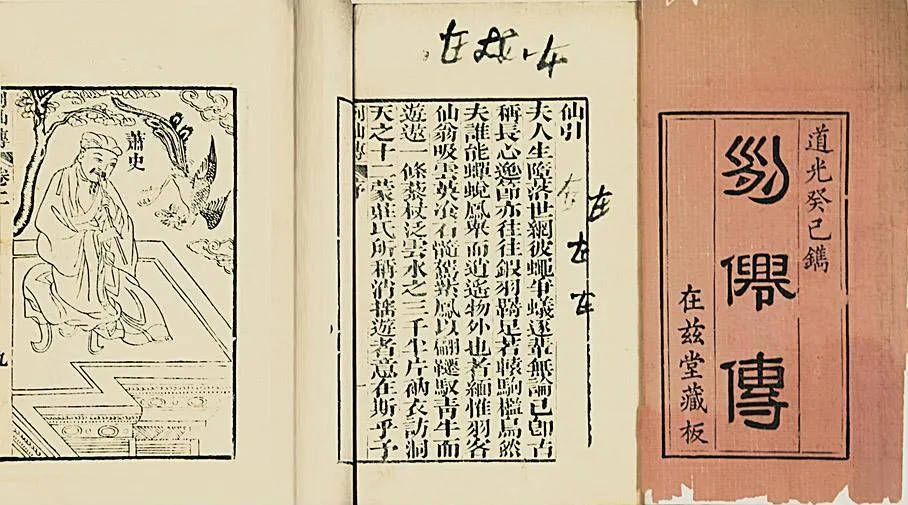 道光癸巳鐫
列僊傳
在兹堂藏板
仙引
夫人生墮落世網彼蠅爭蟻逐輩無論已卽古
稱長心逸節亦往往鎩羽羇足若轅駒檻鳥然
夫誰能蟬蛻鳳舉而逍遙物外也者緬惟羽客
仙翁吸雲英飡石髓駕紫鳳以翩躚馭青牛而
遊遨一條藜杖泛雲水之三千半片衲衣訪洞
天之十二蒙莊氏所稱消搖遊者意在斯乎予
列仙傳 序 一
在
在
在
在
蕭史
列仙傳 卷二 九